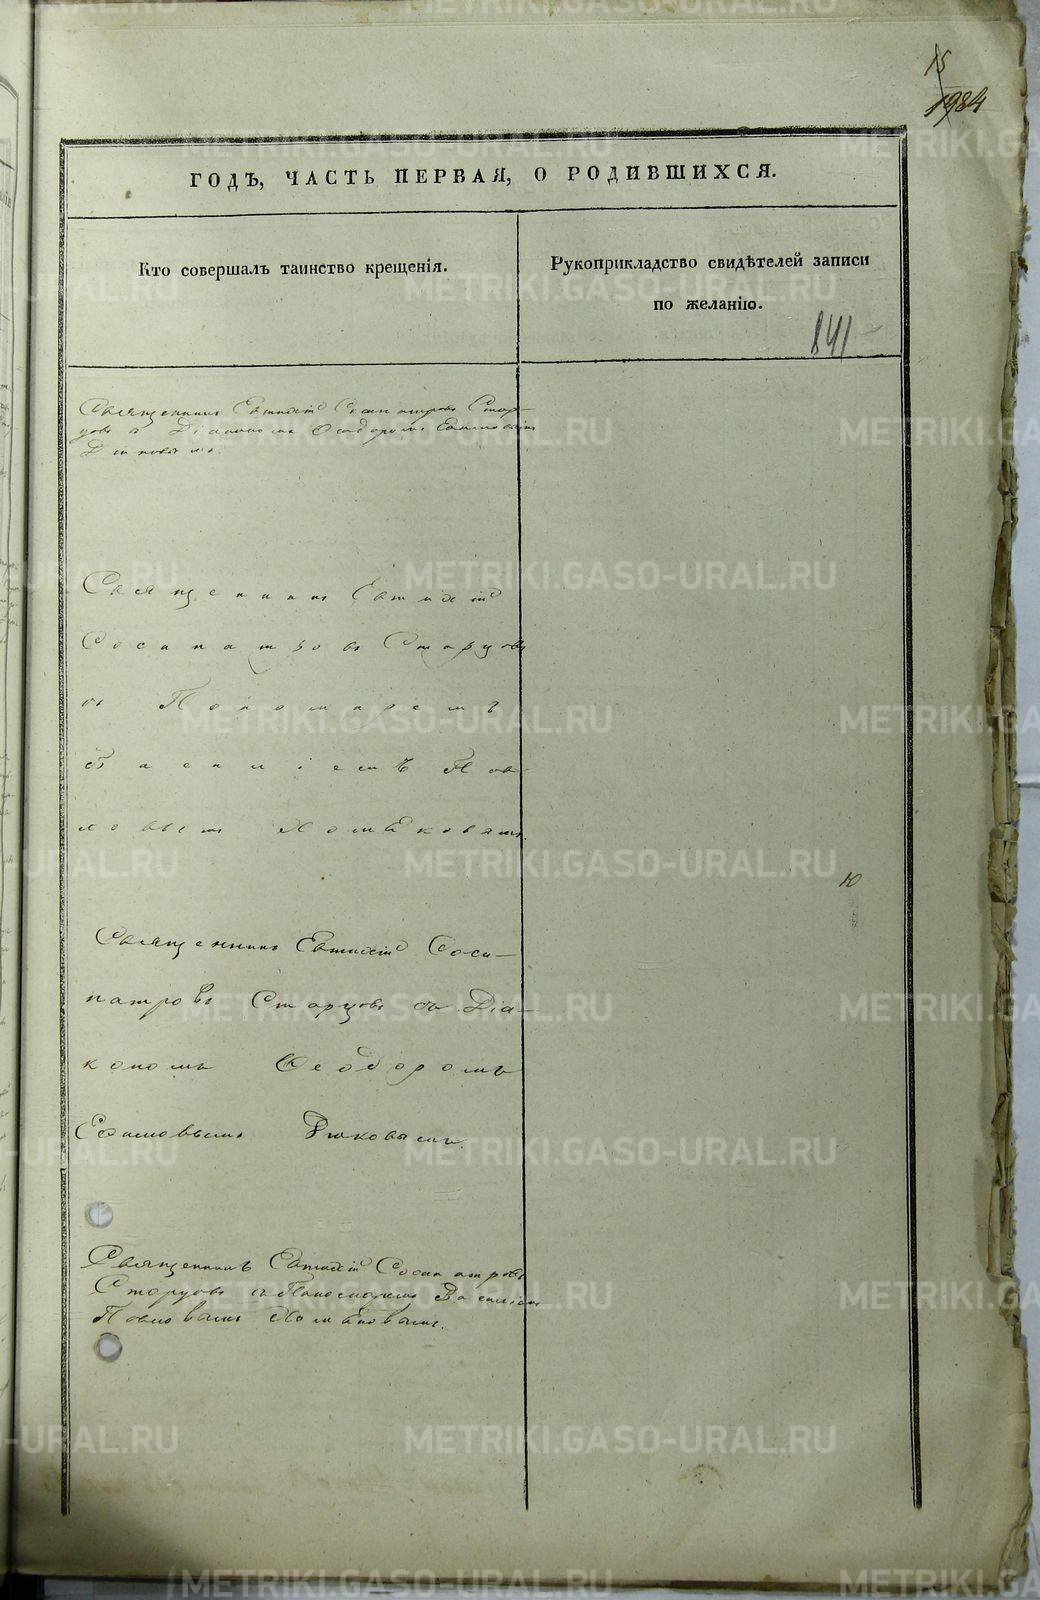 15
1984
ГОДЪ, ЧАСТЬ ПЕРВАЯ, О РОДИВШИХСЯ.
Кто совершалъ таинство крещенія.
Рукоприкладство свидѣтелей записи
по желанію.
841
Священникъ Евтихій Сосипатровъ Стар-
цовъ съ Діакономъ Ѳеодоромъ Ефимовымъ
Священникъ Евтихій
Сосипатровъ Старцовъ
съ Пономаремъ
Василіемъ Пав-
ловымъ
Священникъ Евтихій Соси-
патровъ Старцовъ съ Діа-
кономъ Ѳеодоромъ
Ефимовымъ
Священникъ Евтихій Сосипатровъ
Старцовъ съ Пономаремъ Василіемъ
Павловымъ
METRIKI.GASO-URAL.RU